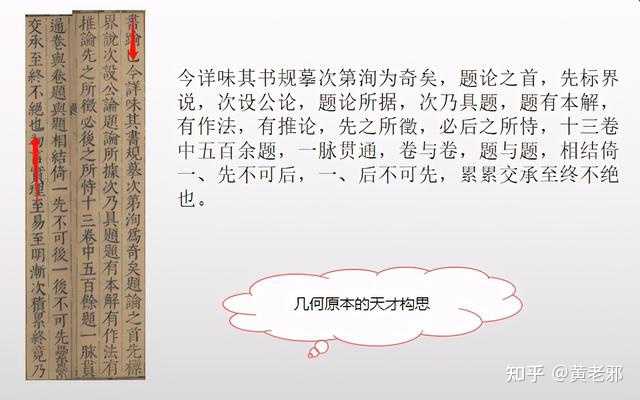 書踰今詳味其書規摹次第洵爲奇矣題論之首先標
界說次設公論題論所據次乃具題題有本解有作法有
推論先之所徵必後之所恃十三卷中五百餘題一脉貫
通卷與卷題與題相結倚一先不可後一後不可先纍纍
交承至終不絕也初言實理至易至明漸次積累終竟乃
今详味其书规摹次第洵为奇矣，题论之首，先标界
说，次设公论，题论所据，次乃具题，题有本解，
有作法，有推论，先之所徵，必后之所恃，十三卷
中五百余题，一脉贯通，卷与卷，题与题，相结倚
一、先不可后，一、后不可先，累累交承至终不绝
也。
几何原本的天才构思
知乎 @黄老邪